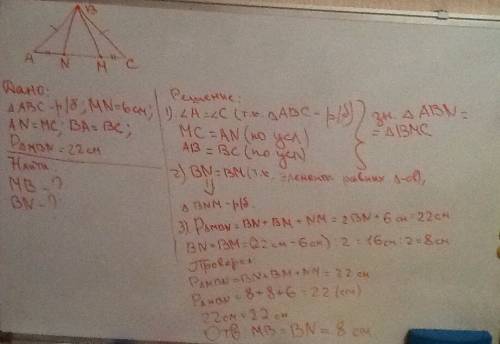 B
A N M C
Дано:
△ABC - р/б; MN = 6 см;
AN = MC; BA = BC;
P△MBN = 22 см
Найти
MB - ?
BN - ?
Решение:
1) ∠A = ∠C (т.к. △ABC - р/б)
MC = AN (по усл)
AB = BC (по усл)
зн. △ABN =
= △BMC
2) BN = BM (т.к. элементы равных △-ов),
⇓
△BNM - р/б.
3) P△MBN = BN + BM + NM = 2BN + 6 см = 22 см
BN = BM = (22 см - 6 см) : 2 = 16 см : 2 = 8 см
Проверка:
P△MBN = BN + BM + NM = 22 см
P△MBN = 8 + 8 + 6 = 22 (см)
22 см = 22 см
Отв MB = BN = 8 см